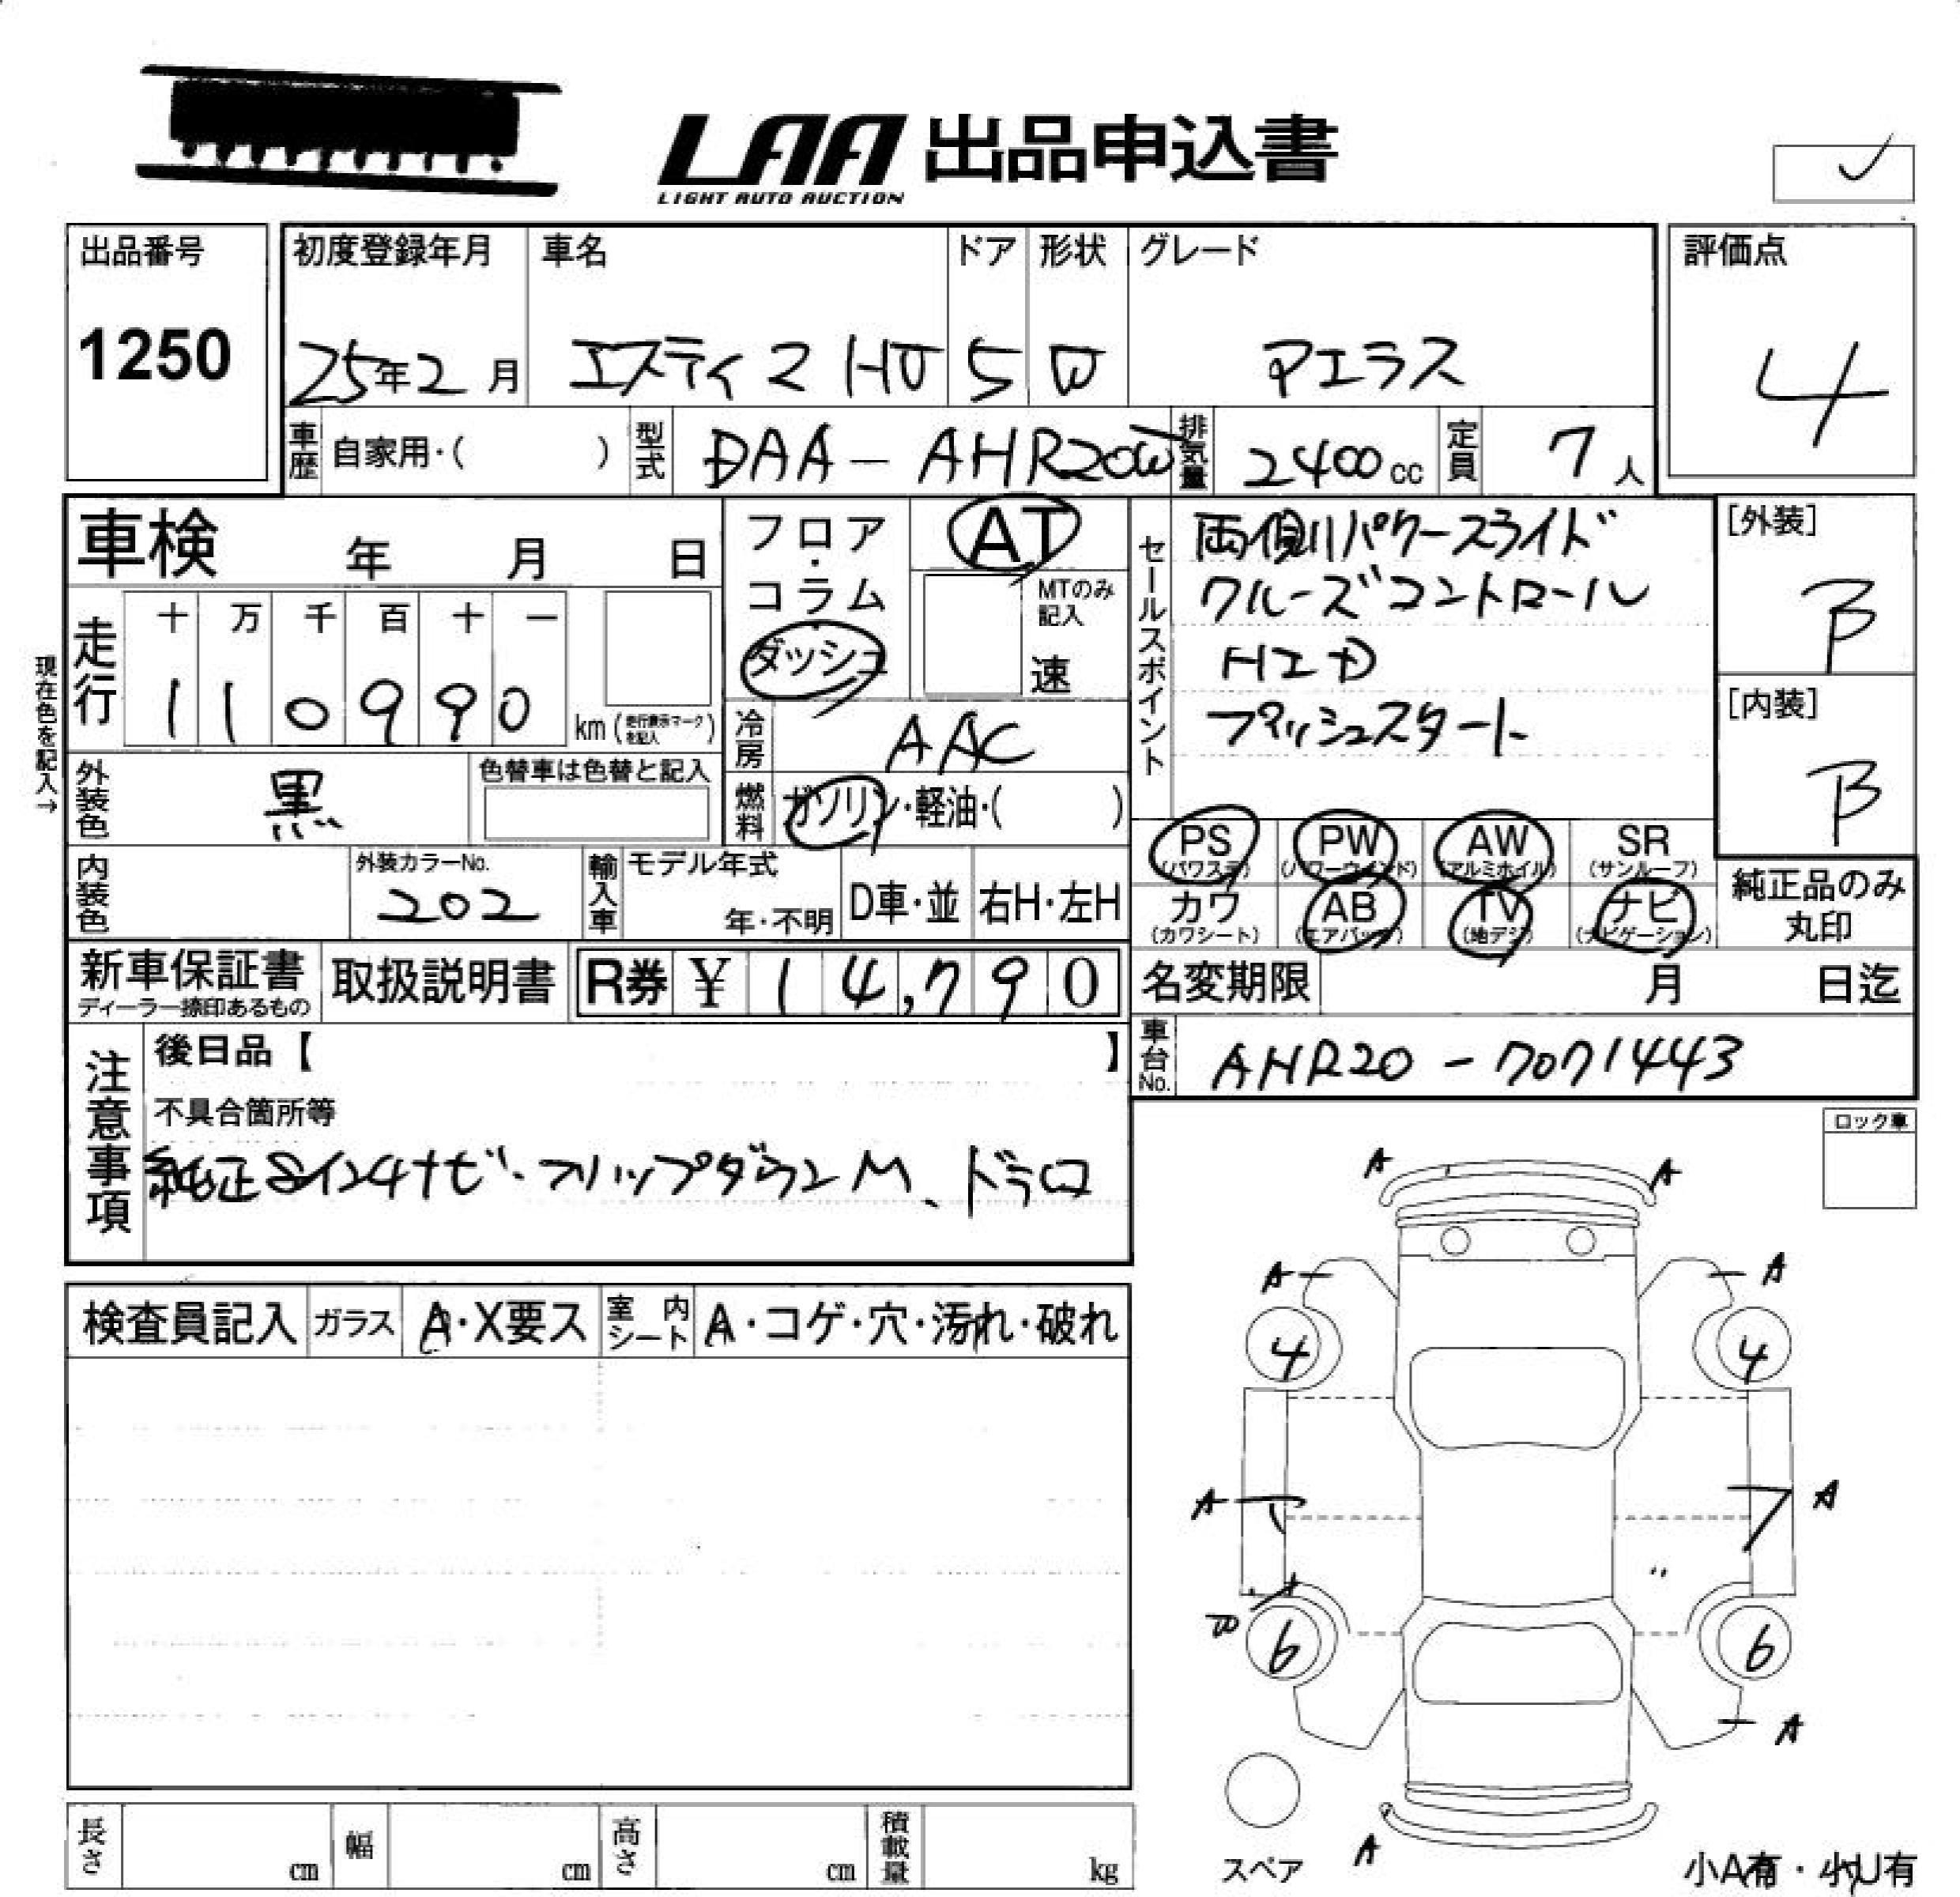 LAA 出品申込書
LIGHT AUTO AUCTION
出品番号
1250
初度登録年月 車名 ドア 形状 グレード 評価点
25年2月 エスティマ HV 5 W アエラス 4
車歴 自家用・( ) 型式 DAA-AHR20W 排気量 2400cc 定員 7人
車検 年 月 日
フロア・コラム
ダッシュ
AT
MTのみ記入
速
セールスポイント
両側パワースライド
クルーズコントロール
HID
プッシュスタート
[外装]
B
[内装]
B
現在色を記入→
走行 十 万 千 百 十 一
110990 km (走行表示マークを記入)
冷房 AAC
外装色 黒 色替車は色替と記入
燃料 ガソリン・軽油・( )
PS (パワステ) PW (パワーウインド) AW (アルミホイル) SR (サンルーフ)
カワ (カワシート) AB (エアバック) TV (地デジ) ナビ (ナビゲーション)
純正品のみ丸印
内装色 外装カラーNo. 202 輸入車 モデル年式 年・不明 D車・並 右H・左H
新車保証書 ディーラー捺印あるもの 取扱説明書 R券 ¥ 14,790
名変期限 月 日迄
車台No. AHR20-7071443
注意事項
後日品【 】
不具合箇所等
純正8インチナビ・フリップダウンM、ドラロコ
ロック車
検査員記入 ガラス A・X要ス 室内シート A・コゲ・穴・汚れ・破れ
A A
A A
4 4
A A
6 6
A
A
スペア
小A有・小U有
長さ cm 幅 cm 高さ cm 積載量 kg